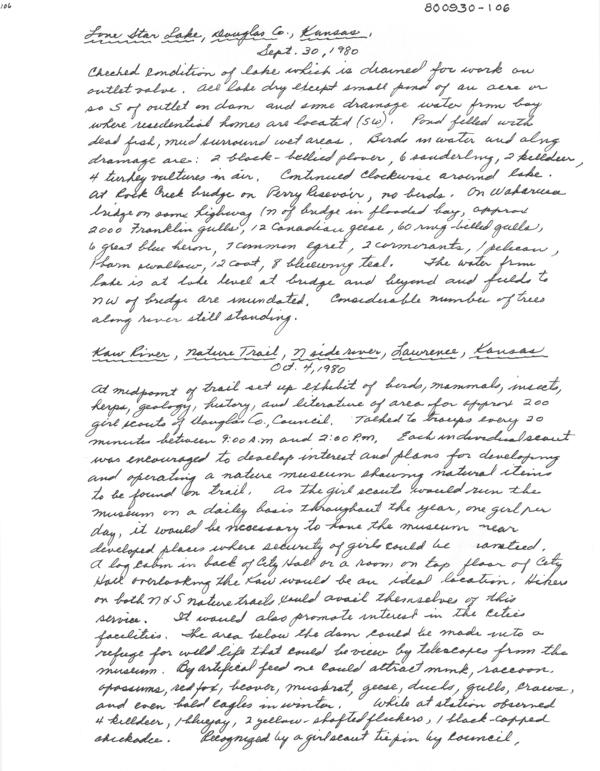 106
800930-106
Lone Star Lake, Douglas Co., Kansas,
Sept. 30, 1980
Checked condition of lake which is drained for work on
outlet valve. All lake dry except small pond of an acre or
so S of outlet on dam and some drainage water from bay
where residential homes are located (SW). Pond filled with
dead fish, mud surround wet areas. Birds in water and along
drainage are: 2 black-bellied plover, 6 sanderling, 2 killdeer,
4 turkey vultures in air. Continued clockwise around lake.
At Rock Creek bridge on Perry Resevoir, no birds. On Wakarusa
bridge on same highway (N of bridge in flooded bay, approx
2000 Franklin gulls, 12 Canadian geese, 60 ring-billed gulls,
6 great blue heron, 7 common egret, 2 cormorants, 1 pelican,
1 barn swallow, 12 coot, 8 bluewing teal. The water from
lake is at lake level at bridge and beyond and fields to
NW of bridge are inundated. Considerable number of trees
along river still standing.
Kaw River, Nature Trail, N side river, Lawrence, Kansas
Oct. 4, 1980
At midpoint of trail set up exhibit of birds, mammals, insects,
herps, geology, history, and literature of area for approx 200
girl scouts of Douglas Co. Council. Talked to troups every 20
minutes between 9:00 A.M and 2:00 P.M. Each individual scout
was encouraged to develop interest and plans for developing
and operating a nature museum showing natural items
to be found on trail. As the girl scouts would run the
museum on a dailey basis throughout the year, one girl per
day, it would be necessary to have the museum near
developed places where security of girls could be
A log cabin in back of City Hall or a room on top floor of City
Hall overlooking the Kaw would be an ideal location. Hikers
on both N & S nature trails could avail themselves of this
service. It would also promote interest in the cities
facilities. The area below the dam could be made into a
refuge for wild life that could be view by telescopes from the
museum. By artifical feed one could attract mink, raccoon,
opossums, red fox, beaver, muskrat, geese, ducks, gulls, crows,
and even bald eagles in winter. While at station observed
4 killdeer, 1 bluejay, 2 yellow-shafted flickers, 1 black-capped
chickadee. Recognized by a girl scout tiepin by council,